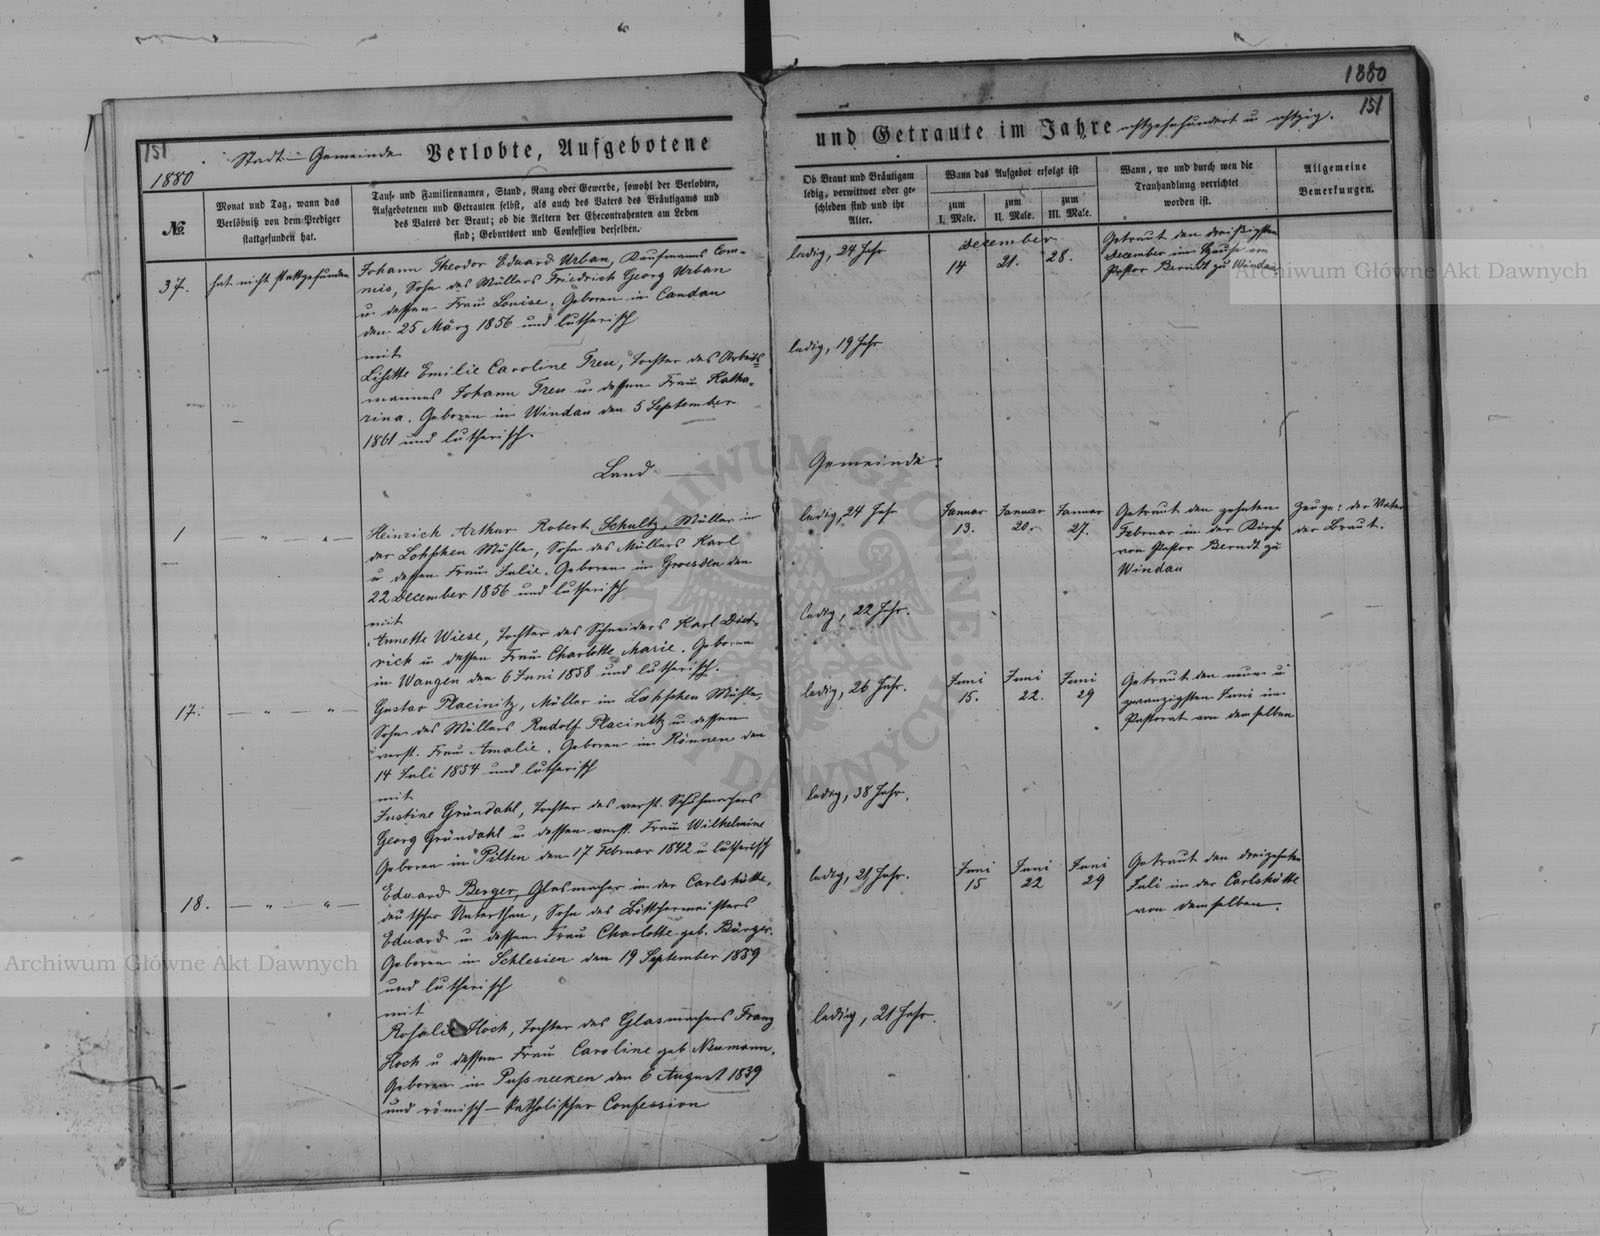 151
1880
Stadt-Gemeinde Verlobte, Aufgebotene
No.
Monat und Tag, wann das
Verlöbniß von dem Prediger
stattgefunden hat.
Tauf- und Familiennamen, Stand, Rang oder Gewerbe, sowohl der Verlobten,
Aufgebotenen und Getrauten selbst, als auch des Vaters des Bräutigams und
des Vaters der Braut; ob die Aeltern der Ehecontrahenten am Leben
sind; Geburtsort und Confession derselben.
37. hat nicht stattgefunden
Johann Theodor Eduard Urban, Kaufmanns Com-
mis, Sohn des Müllers Friedrich Georg Urban
u. dessen Frau Louise. Geboren in Candau
den 25 März 1856 und lutherisch
mit
Lisette Emilie Caroline Treu, Tochter des Arbeits-
mannes Johann Treu u dessen Frau Katha-
rina. Geboren in Windau den 5 September
1861 und lutherisch.
Land
1 — " — " —
Heinrich Arthur Robert Schultz, Müller in
der Lohschen Mühle, Sohn des Müllers Karl
u dessen Frau Julie. Geboren in Groesden den
22 December 1856 und lutherisch
mit
Annette Wiese, Tochter des Schneiders Karl Diet-
rich u dessen Frau Charlotte Marie. Geboren
in Wangen den 6 Juni 1858 und lutherisch.
17. — " — " —
Gustav Placinitz, Müller in Mühle,
Sohn des Müllers Rudolf Placinitz u dessen
verst. Frau Amalie. Geboren in Rönnen den
14 Juli 1854 und lutherisch
mit
Justine Gründahl, Tochter des verst. Schuhmachers
Georg Gründahl u dessen verst. Frau Wilhelmine
Geboren in Pilten den 17 Februar 1842 u lutherisch
18. — " — " —
Eduard Berger, Glasmacher in der Carlshütte,
deutscher Unterthan, Sohn des Böttchermeisters
Eduard u dessen Frau Charlotte geb. Bürger.
Geboren in Schlesien den 19 September 1859
und lutherisch
mit
Rosalie Hoch, Tochter des Glasmachers Franz
Hoch u dessen Frau Caroline geb Neumann.
Geboren in den 6 August 1859
und römisch-katholischer Confession
1880
151
und Getraute im Jahre achtzehnhundert u achtzig.
Ob Braut und Bräutigam
ledig, verwittwet oder ge-
schieden sind und ihr
Alter.
Wann das Aufgebot erfolgt ist
zum
I. Male.
zum
II. Male.
zum
III. Male.
Wann, wo und durch wen die
Trauhandlung verrichtet
worden ist.
Allgemeine
Bemerkungen.
ledig, 24 Jahr
December
14 21. 28.
Getraut den dreißigsten
December im Hause von
Pastor Berndt zu Windau
ledig, 19 Jahr
Gemeinde.
ledig, 24 Jahr
Januar Januar Januar
13. 20. 27.
Getraut den zehnten
Februar in der Kirche
von Pastor Berndt zu
Windau
Zeuge: der Vater
der Braut.
ledig, 22 Jahr.
ledig, 26 Jahr.
Juni Juni Juni
15. 22. 29
Getraut den neun u
zwanzigsten Juni im
Pastorat von demselben
ledig, 38 Jahr.
ledig, 21 Jahr.
Juni Juni Juni
15 22 29
Getraut den dreizehnten
Juli in der Carlshütte
von demselben.
ledig, 21 Jahr.
Archiwum Główne Akt Dawnych
Archiwum Główne Akt Dawnych
ARCHIWUM GŁÓWNE AKT DAWNYCH